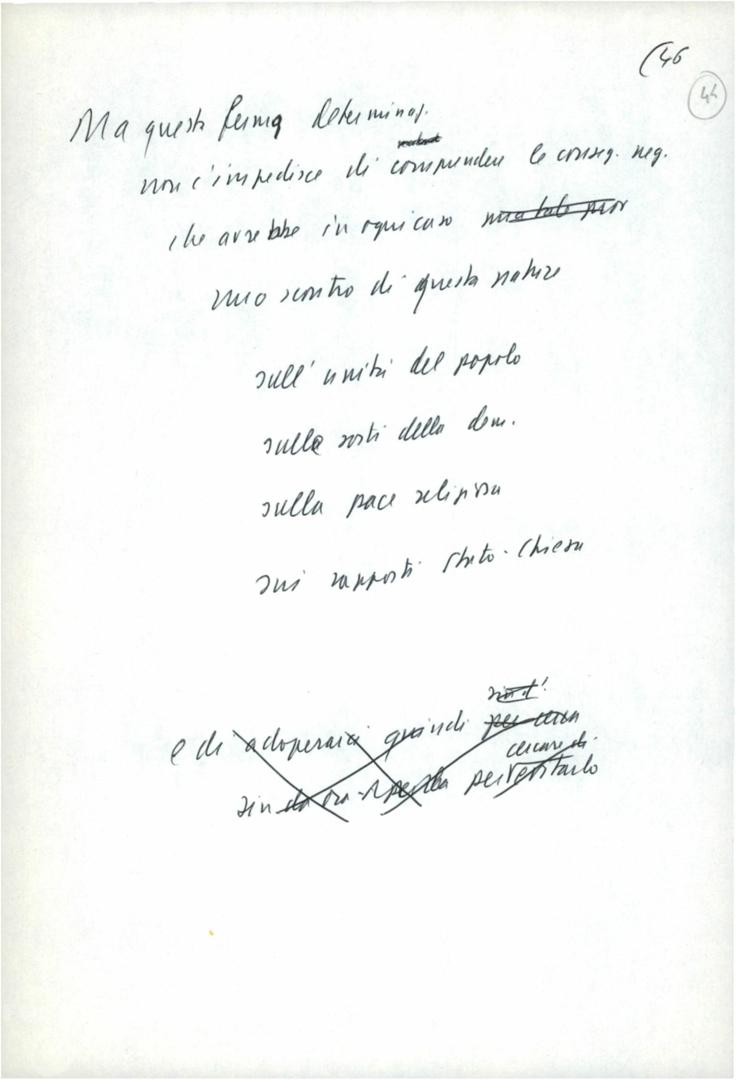 (46
44
Ma questa ferma determinaz.
non c'impedisce di comprendere le conseg. neg.
che avrebbe in ogni caso
uno scontro di questa natura
sull'unità del popolo
sulle sorti della dem.
sulla pace religiosa
sui rapporti Stato-Chiesa
e di adoperarci quindi per
cercare di
sin da ora per evitarlo